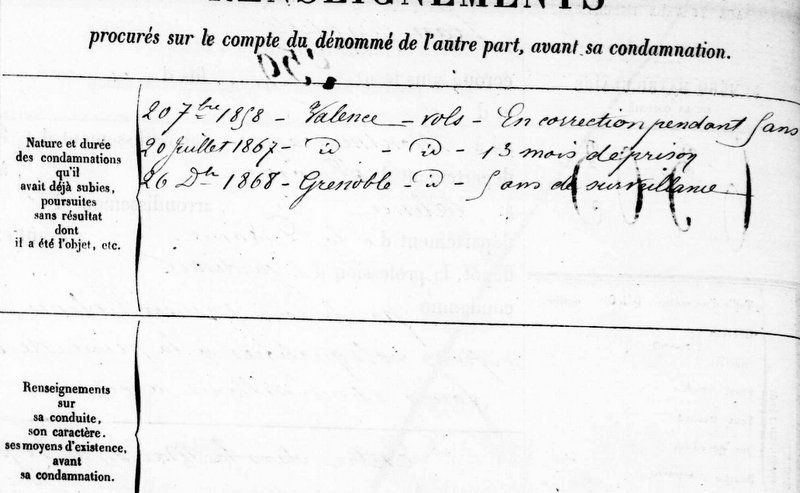 RENSEIGNEMENTS
procurés sur le compte du dénommé de l'autre part, avant sa condamnation.
Nature et durée
des condamnations
qu'il
avait déjà subies,
poursuites
sans résultat
dont
il a été l'objet, etc.
20 7bre 1858 - Valence - vols - En correction pendant 5 ans
20 Juillet 1867 - id - id - 13 mois de prison
26 Dbre 1868 - Grenoble - id - 5 ans de surveillance
Renseignements
sur
sa conduite,
son caractère.
ses moyens d'existence,
avant
sa condamnation.